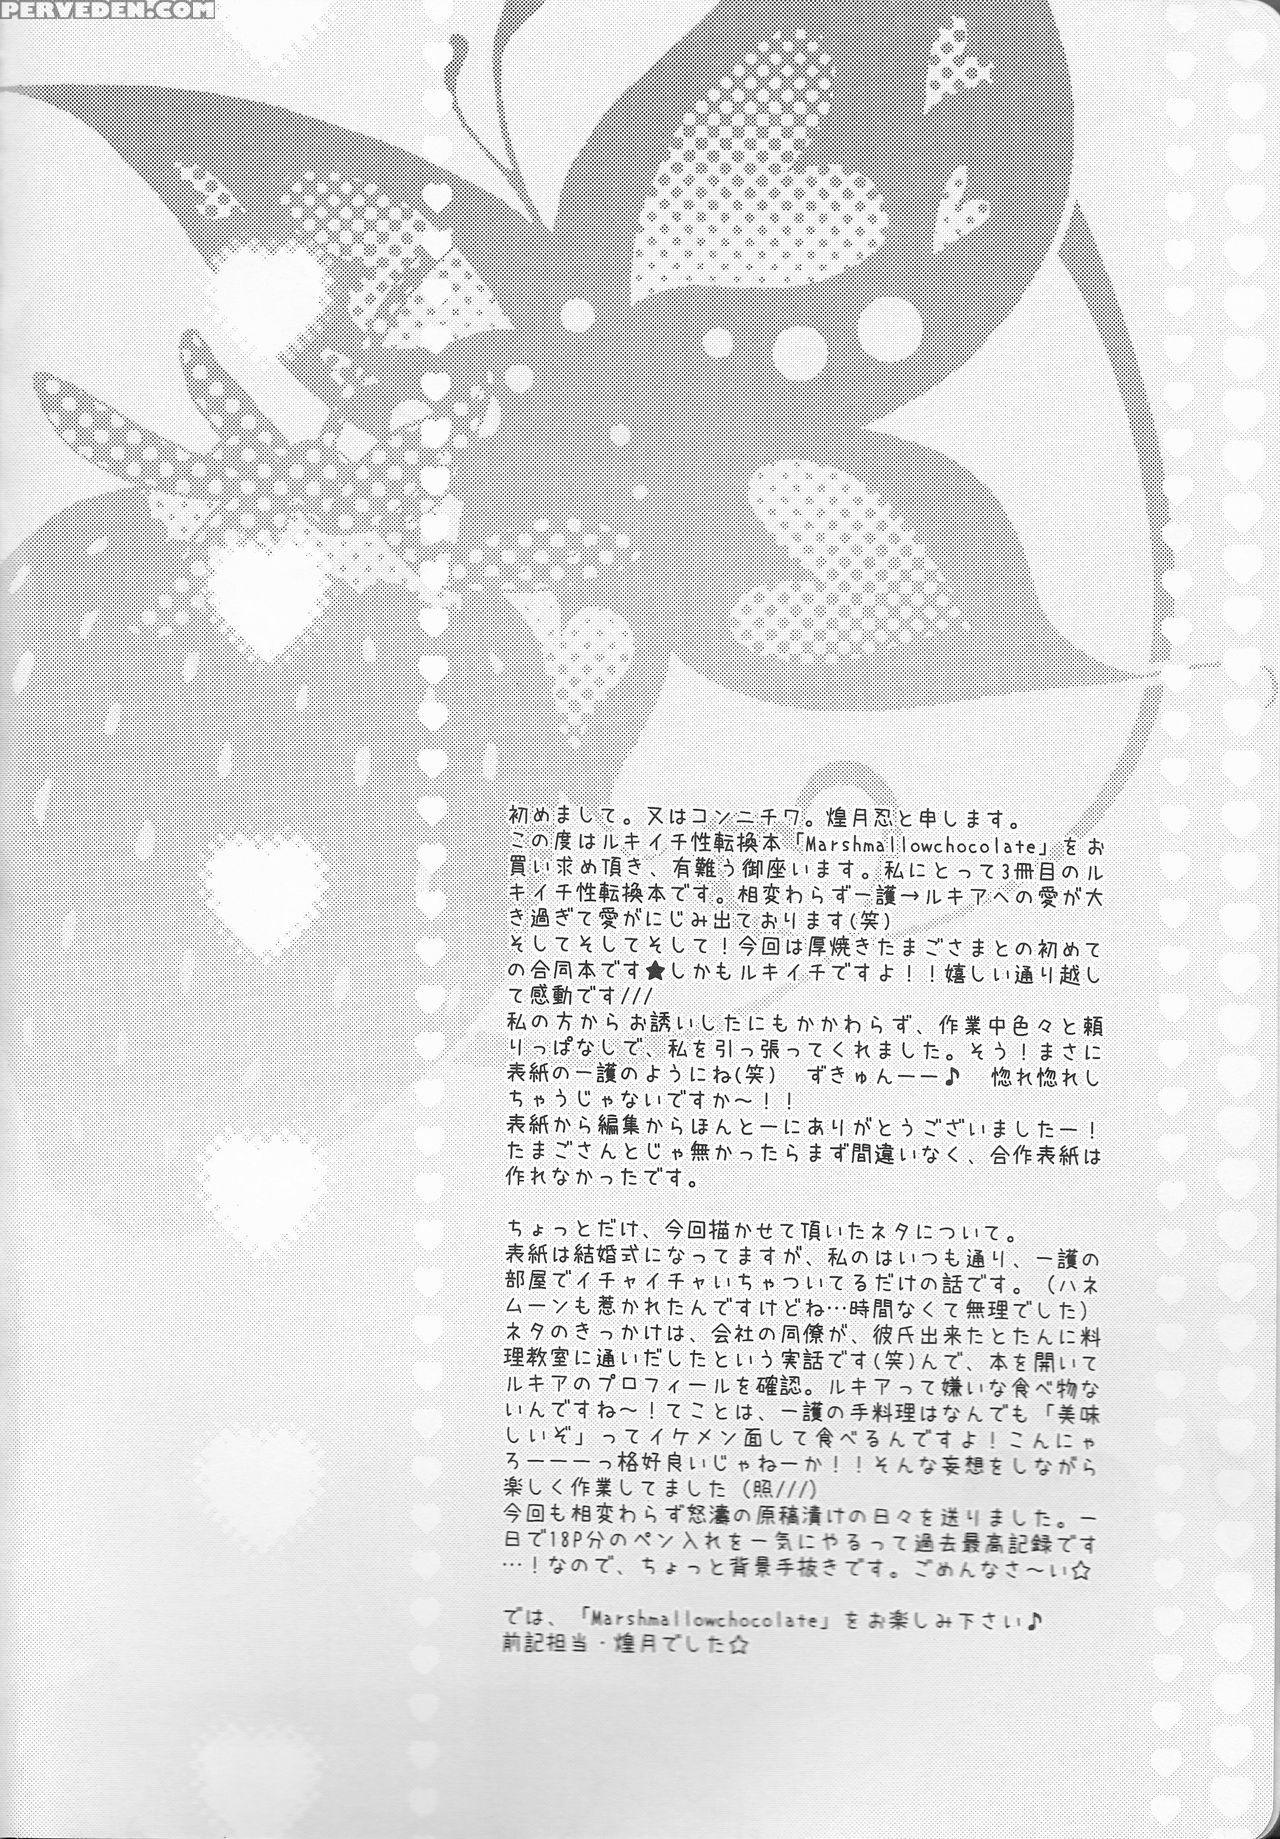 PERVEDEN.COM
初めまして。又はコンニチワ。煌月忍と申します。
この度はルキイチ性転換本「Marshmallowchocolate」をお
買い求め頂き、有難う御座います。私にとって3冊目のル
キイチ性転換本です。相変わらず一護→ルキアへの愛が大
き過ぎて愛がにじみ出ております(笑)
そしてそしてそして！今回は厚焼きたまごさまとの初めて
の合同本です★しかもルキイチですよ！！嬉しい通り越し
て感動です///
私の方からお誘いしたにもかかわらず、作業中色々と頼
りっぱなしで、私を引っ張ってくれました。そう！まさに
表紙の一護のようにね(笑)　ずきゅんーー♪　惚れ惚れし
ちゃうじゃないですか～！！
表紙から編集からほんとーにありがとうございましたー！
たまごさんとじゃ無かったらまず間違いなく、合作表紙は
作れなかったです。
ちょっとだけ、今回描かせて頂いたネタについて。
表紙は結婚式になってますが、私のはいつも通り、一護の
部屋でイチャイチャいちゃついてるだけの話です。（ハネ
ムーンも惹かれたんですけどね…時間なくて無理でした）
ネタのきっかけは、会社の同僚が、彼氏出来たとたんに料
理教室に通いだしたという実話です(笑)んで、本を開いて
ルキアのプロフィールを確認。ルキアって嫌いな食べ物な
いんですね～！てことは、一護の手料理はなんでも「美味
しいぞ」ってイケメン面して食べるんですよ！こんにゃ
ろーーーっ格好良いじゃねーか！！そんな妄想をしながら
楽しく作業してました（照///）
今回も相変わらず怒濤の原稿漬けの日々を送りました。一
日で18P分のペン入れを一気にやるって過去最高記録です
…！なので、ちょっと背景手抜きです。ごめんなさ～い☆
では、「Marshmallowchocolate」をお楽しみ下さい♪
前記担当・煌月でした☆